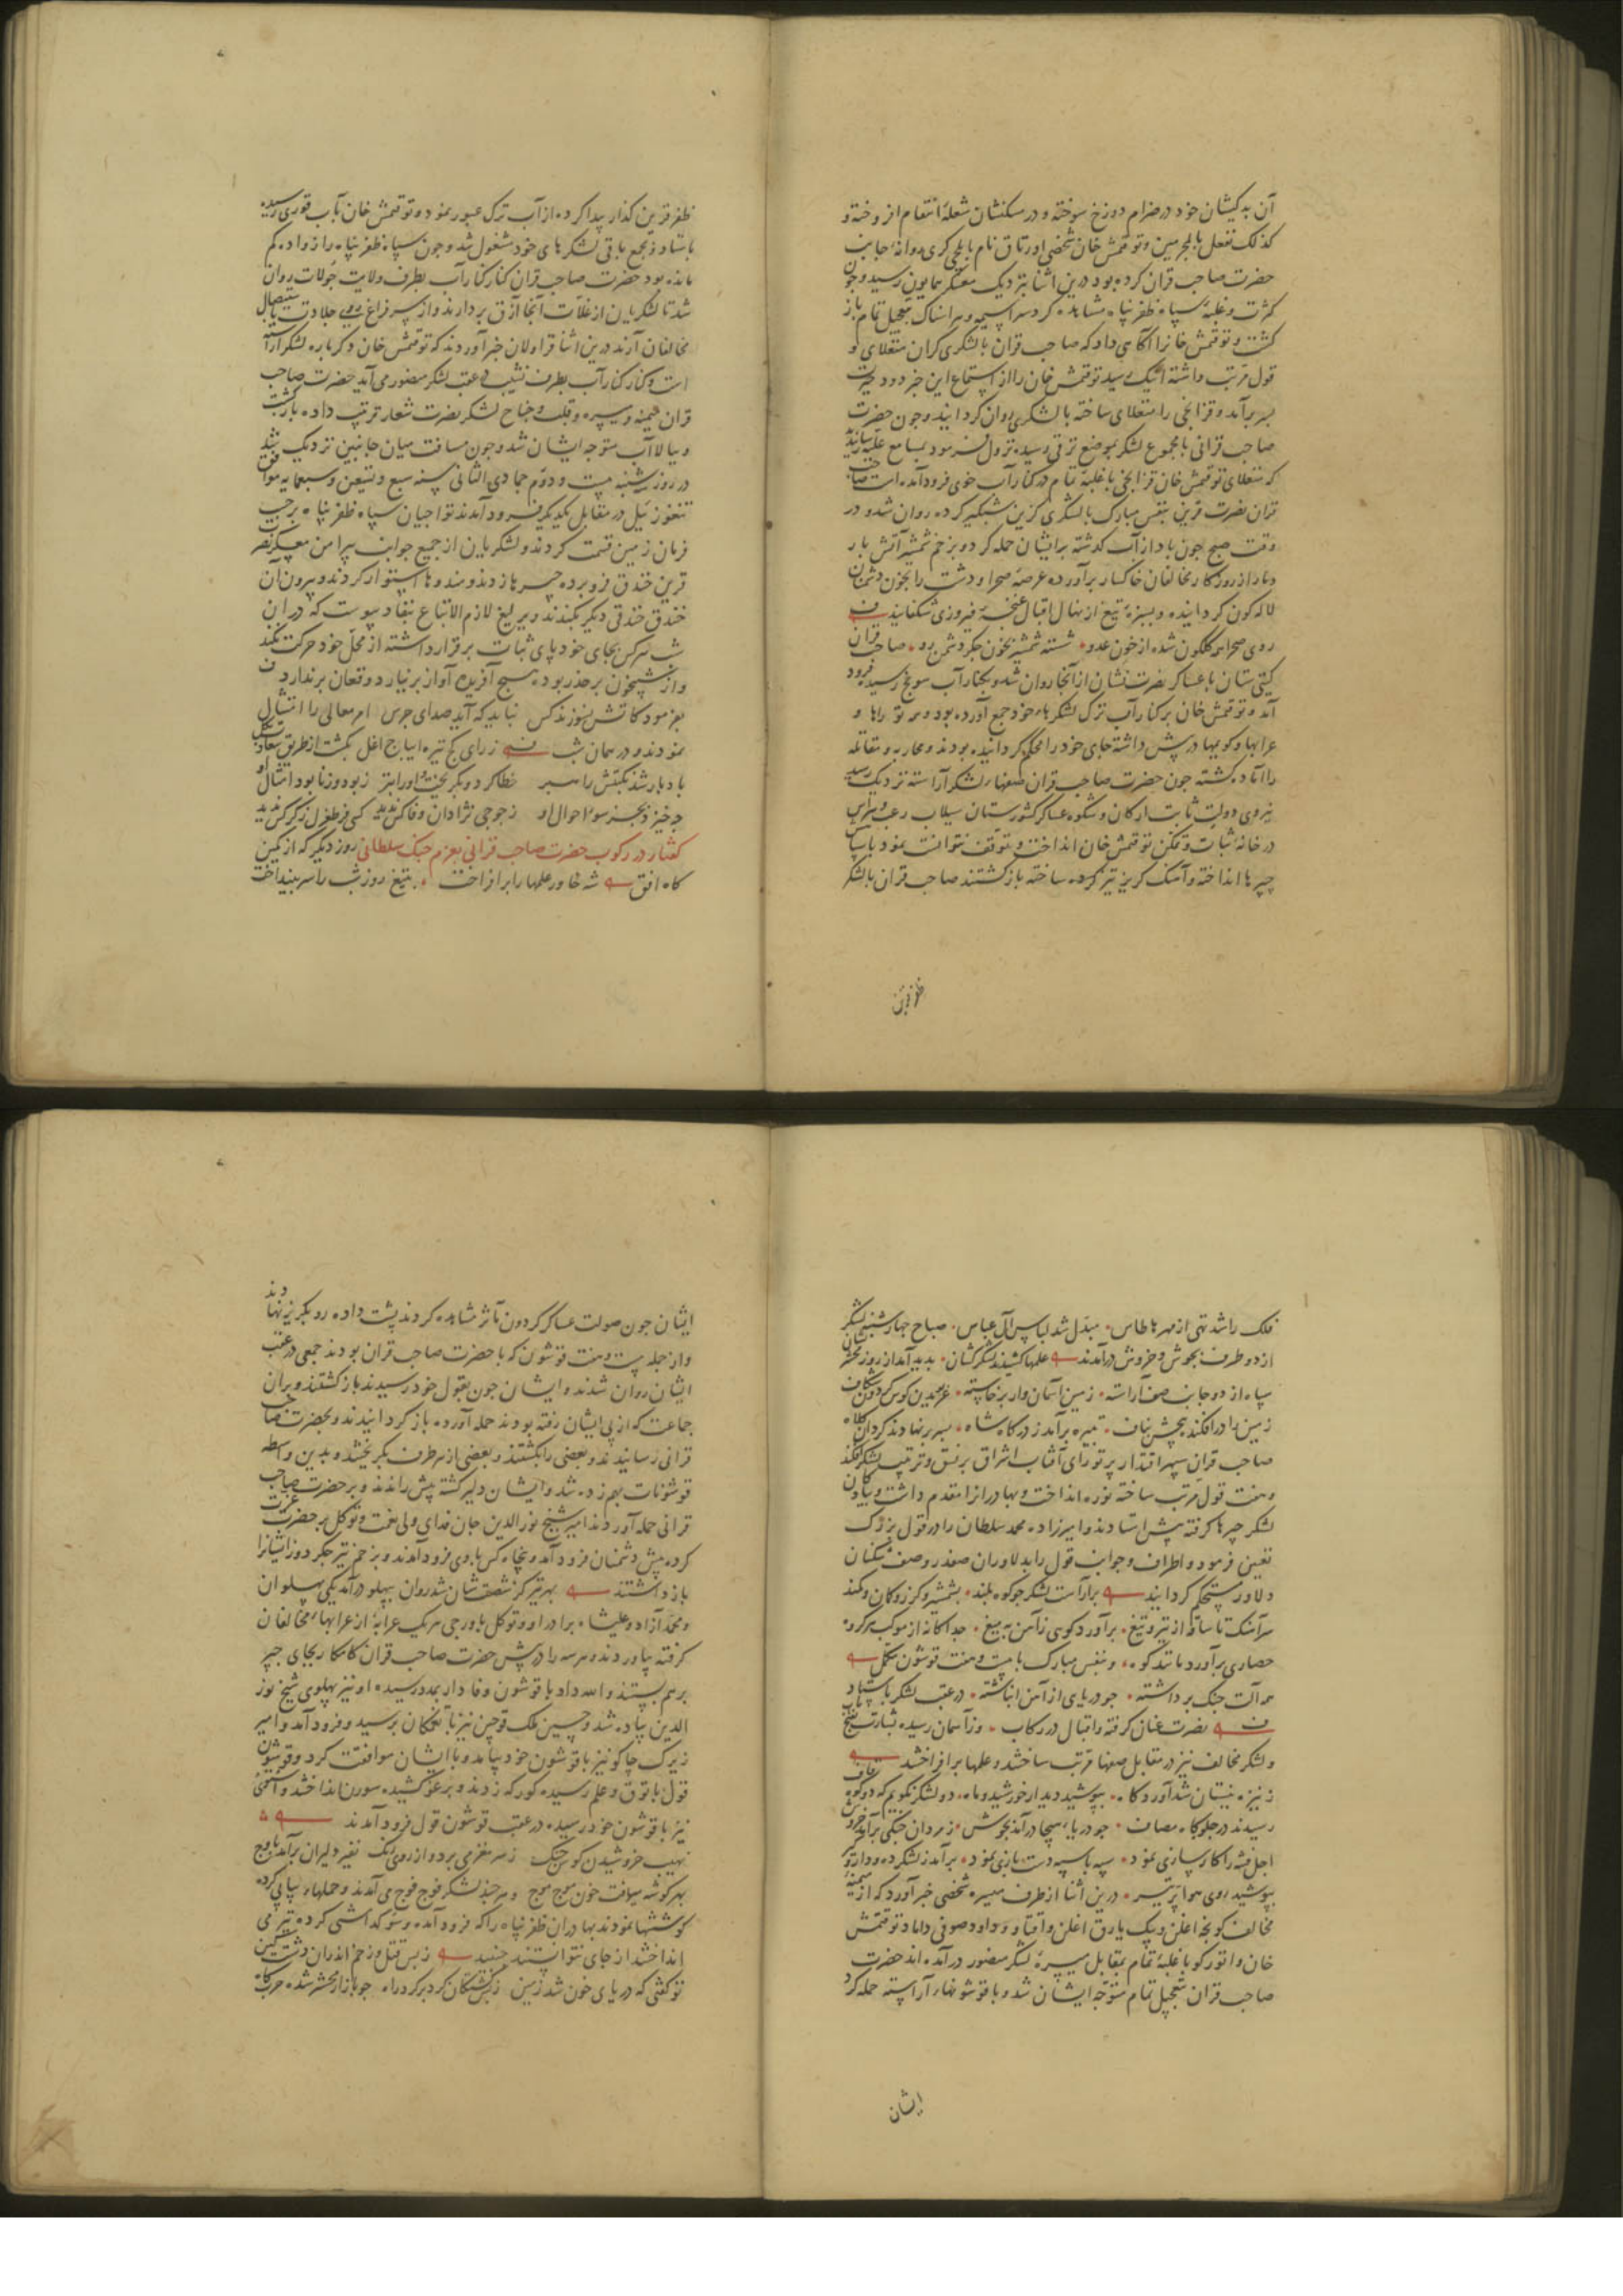 آن بدکیشان خود در ضرام دوزخ سوخته و در مسکنشان شعلهٔ انتقام افروخته و
کذلک نفعل بالمجرمین و توقتمش خان شخصی اورتاق نام بایلچی کری روانهٔ جانب
حضرت صاحب قران کرده بود درین اثنا بنزدیک معسکر همایون رسید و چون
کثرت و غلبهٔ سپاه ظفرپناه مشاهده کرد سراسیمه و هراسناک بتعجیل تمام باز
کشت و توقتمش خانرا آکاهی داد که صاحب قران بالشکری کران منقلای و
قول مرتب داشته اینک رسید توقتمش خان را از استماع این خبر دود حیرت
بسر برآمد و قزانچی را منقلای ساخته بالشکری روان کردانید و چون حضرت
صاحب قرانی با مجموع لشکر بموضع ترقی رسیده نزول فرمود بمسامع علیه رسانیدند
که منقلای توقتمش خان قزانچی با غلبهٔ تمام در کنار آب خوی فرود آمده است صاحب
قران نصرت قرین بنفس مبارک بالشکری کزین شبکیر کرده روان شد و در
وقت صبح چون باد از آب کذشته برایشان حمله کرد و بزخم شمشیر آتش بار
دمار از روزکار مخالفان خاکسار برآورده عرصهٔ صحرا و دشت را بخون دشمنان
لاله کون کردانیده و بسبزهٔ تیغ از نهال اقبال غنچهٔ فیروزی شکفانید
روی صحرا همه کلکون شده از خون عدو شسته شمشیر بخون جکر دشمن رو صاحب قران
کیتی ستان با عساکر نصرت نشان از آنجا روان شد و بکنار آب سونج رسیده فرود
آمد و توقتمش خان بر کنار آب ترک لشکرهاء خود جمع آورده بود و توراها و
عرابها و کوبها در پیش داشته جای خود را محکم کردانیده بودند و محاربه و مقاتله
را آماده کشته چون حضرت صاحب قران صفهاء لشکر آراسته نزدیک رسید
نیروی دولت ثابت ارکان و شکوه عساکر کشورستان سیلاب رعب و هراس
در خانهٔ ثبات و تمکن توقتمش خان انداخت و توقف نتوانست نمود با سپاه
چپرها انداخته و آهنک کریز تیز کرده ساخته باز کشتند صاحب قران بالشکر
ظفرقرین
ظفر قرین کذار پیدا کرده از آب ترک عبور نمود و توقتمش خان بآب قوری رسیده
باستاد و بجمع باقی لشکرهای خود مشغول شد و چون سپاه ظفرپناه را زواده کم
مانده بود حضرت صاحب قران کنار کنار آب بطرف ولایت جولات روان
شد تا لشکریان از غلات آنجا آزق بردارند و از سر فراغ روی جلادت باستیصال
مخالفان آرند درین اثنا قراولان خبر آوردند که توقتمش خان دکرباره لشکر آراسته
است و کنار کنار آب بطرف نشیب در عقب لشکر منصور می آید حضرت صاحب
قران میمنه و میسره و قلب و جناح لشکر نصرت شعار ترتیب داده بازکشت
و ببالا آب متوجه ایشان شد و چون مسافت میان جانبین نزدیک شد
در روز سه شنبه بیست و دوم جمادی الثانی سنه سبع و تسعین و سبعمایه موافق
تنغوز ئیل در مقابل یکدیکر فرود آمدند تواجیان سپاه ظفرپناه برحسب
فرمان زمین قسمت کردند و لشکریان از جمیع جوانب پیرامن معسکر نصر
قرین خندق فرو برده چپرها زدند و مندوها استوار کردند و بیرون آن
خندق خندقی دیکر بکندند و یرلیغ لازم الاتباع بنفاد پیوست که در آن
شب هرکس بجای خود پای ثبات برقرار داشته از محل خود حرکت نکند
و از شبیخون برحذر بوده هیچ آفریده آواز برنیارد و فغان برندارد
بفرمود کاتش نسوزند کس نباید که آید صدای جرس امر معالی را امتثال
نمودند و در همان شب زرای کج تیره ایباج اغلن بکشت از طریق سعادت
بادبار شد بختش راهبر خطا کرد و بکریخت
چه خیزد بجز سوء احوال او ز جوجی نژادان وفا کس ندید کسی فر طغرل ز کرکس ندید
کفتار در رکوب حضرت صاحب قرانی بعزم جنک سلطانی روز دیکر که از کمین
کاه افق شه خاور علمها را برافراخت بتیغ روز شب را سر بینداخت
فلک را شد تهی از مهرها طاس مبدل شد لباس آل عباس صباح چهارشنبه لشکر
از دو طرف بجوش و خروش درآمدند علمها کشیدند لشکرکشان پدید آمد از روز محشر نشان
سپاه از دو جانب صف آراسته زمین آسمان وار برخاسته غریویدن کوس کردون شکاف
زمین را درافکند پیچش بناف تبیره برآمد ز درکاه شاه بسر برنهادند کردان کلاه
صاحب قران سپهر اقتدار پرتو رای آفتاب اشراق بر نسق و ترتیب لشکر افکند
و هفت قول مرتب ساخته توره انداخت و بهادرانرا مقدم داشت و پیادکان
لشکر چپرها کرفته پیش استادند و امیرزاده محمد سلطان را در قول بزرک
تعیین فرمود و اطراف و جوانب قول را بدلاوران صفدر و صف شکنان
دلاور مستحکم کردانید برآراست لشکر چو کوه بلند بشمشیر و کرز و کمان و کمند
هراشک تا ساقه از تیر و تیغ برآورد کوی ز آهن به میغ جداکانه از موکب هر کروه
حصاری برآورد مانند کوه و بنفس مبارک با بیست و هفت قوشون مکمل
همه آلت جنک برداشته چو دریای از آهن انباشته در عقب لشکر باستاد
نصرت عنان کرفته و اقبال در رکاب وز آسمان رسیده بشارت بفتح باب
و لشکر مخالف نیز در مقابل صفها مرتب ساختند و علمها برافراختند
ز نیزه نیستان شد آوردکاه بپوشید دیدار خورشید و ماه دو لشکر نکویم که دو کوه قاف
رسیدند در جلوه کاه مصاف چو دریا بهیجا درآمد بجوش ز مردان جنکی برآمد خروش
اجل فتنه را کارسازی نمود سپه با سپه دست بازی نمود برآمد ز لشکر ده و دار و کیر
بپوشید روی هوا پر تیر درین اثنا از طرف میسره شخصی خبر آورد که از میمنهٔ
مخالف کونجه اغلن و بیک یارق اغلن و اقتاو و داود صوفی داماد توقتمش
خان و اتورکو با غلبهٔ تمام بمقابل میسرهٔ لشکر منصور درآمده اند حضرت
صاحب قران بتعجیل تمام متوجه ایشان شد و با قوشونهاء آراسته حمله کرد
ایشان
ایشان چون صولت عساکر کردون مآثر مشاهده کردند پشت داده رو بکریز نهادند
و از جمله بیست و هفت قوشون که با حضرت صاحب قران بودند جمعی در عقب
ایشان روان شدند و ایشان چون بقول خود رسیدند بازکشتند و بران
جماعت که از پی ایشان رفته بودند حمله آورده باز کردانیدند و بحضرت صاحب
قرانی رسانیدند و بعضی را بکشتند و بعضی از هر طرف بکریختند و بدین واسطه
قوشونات بهم زده شد و ایشان دلیر کشته پیش راندند و بر حضرت صاحب
قرانی حمله آوردند امیر شیخ نور الدین جان فدای ولی نعمت و توکل بر حضرت عزت
کرده پیش دشمنان فرود آمد و پنجاه کس با وی فرود آمدند و بزخم تیر جکردوز ایشانرا
باز داشتند بهر تیر کز شصت شان شد روان بپهلو درآمد یکی پهلوان
و محمد آزاد و علیشاه برادر او و توکل باورجی هر یک عرابهٔ از عرابهاء مخالفان
کرفته بیاوردند و هر سه را در پیش حضرت صاحب قران کامکار بجای چپر
برهم بستند و الله داد با قوشون وفادار بمدد رسیده او نیز پهلوی شیخ نور
الدین پیاده شد و حسین ملک قوچین نیز با تفنکان برسید و فرود آمد و امیر
زیرک جاکو نیز با قوشون خود بیامد و با ایشان موافقت کرد و قوشون
قول با توق و علم رسیده کورکه زدند و برغو کشیده سورن انداختند و استوی
نیز با قوشون خود رسیده در عقب قوشون قول فرود آمدند
نهیب خروشیدن کوس جنک ز سر مغز می برد و از روی رنک نفیر دلیران برآمد باوج
بهر کوشه میرفت خون موج موج و هرچند لشکر فوج فوج می آمدند و حملهاء پیاپی کرده
کوششها نمودند بهادران ظفرپناه را که فرود آمده و سوکداشی کرده تیر می
انداختند از جای نتوانستند جنبید ز بس قتل و زخم اندران دشت کین
تو کفتی که دریای خون شد زمین ز بس کشتکان کرد بر کرد راه چو بازار محشر شده حربکاه